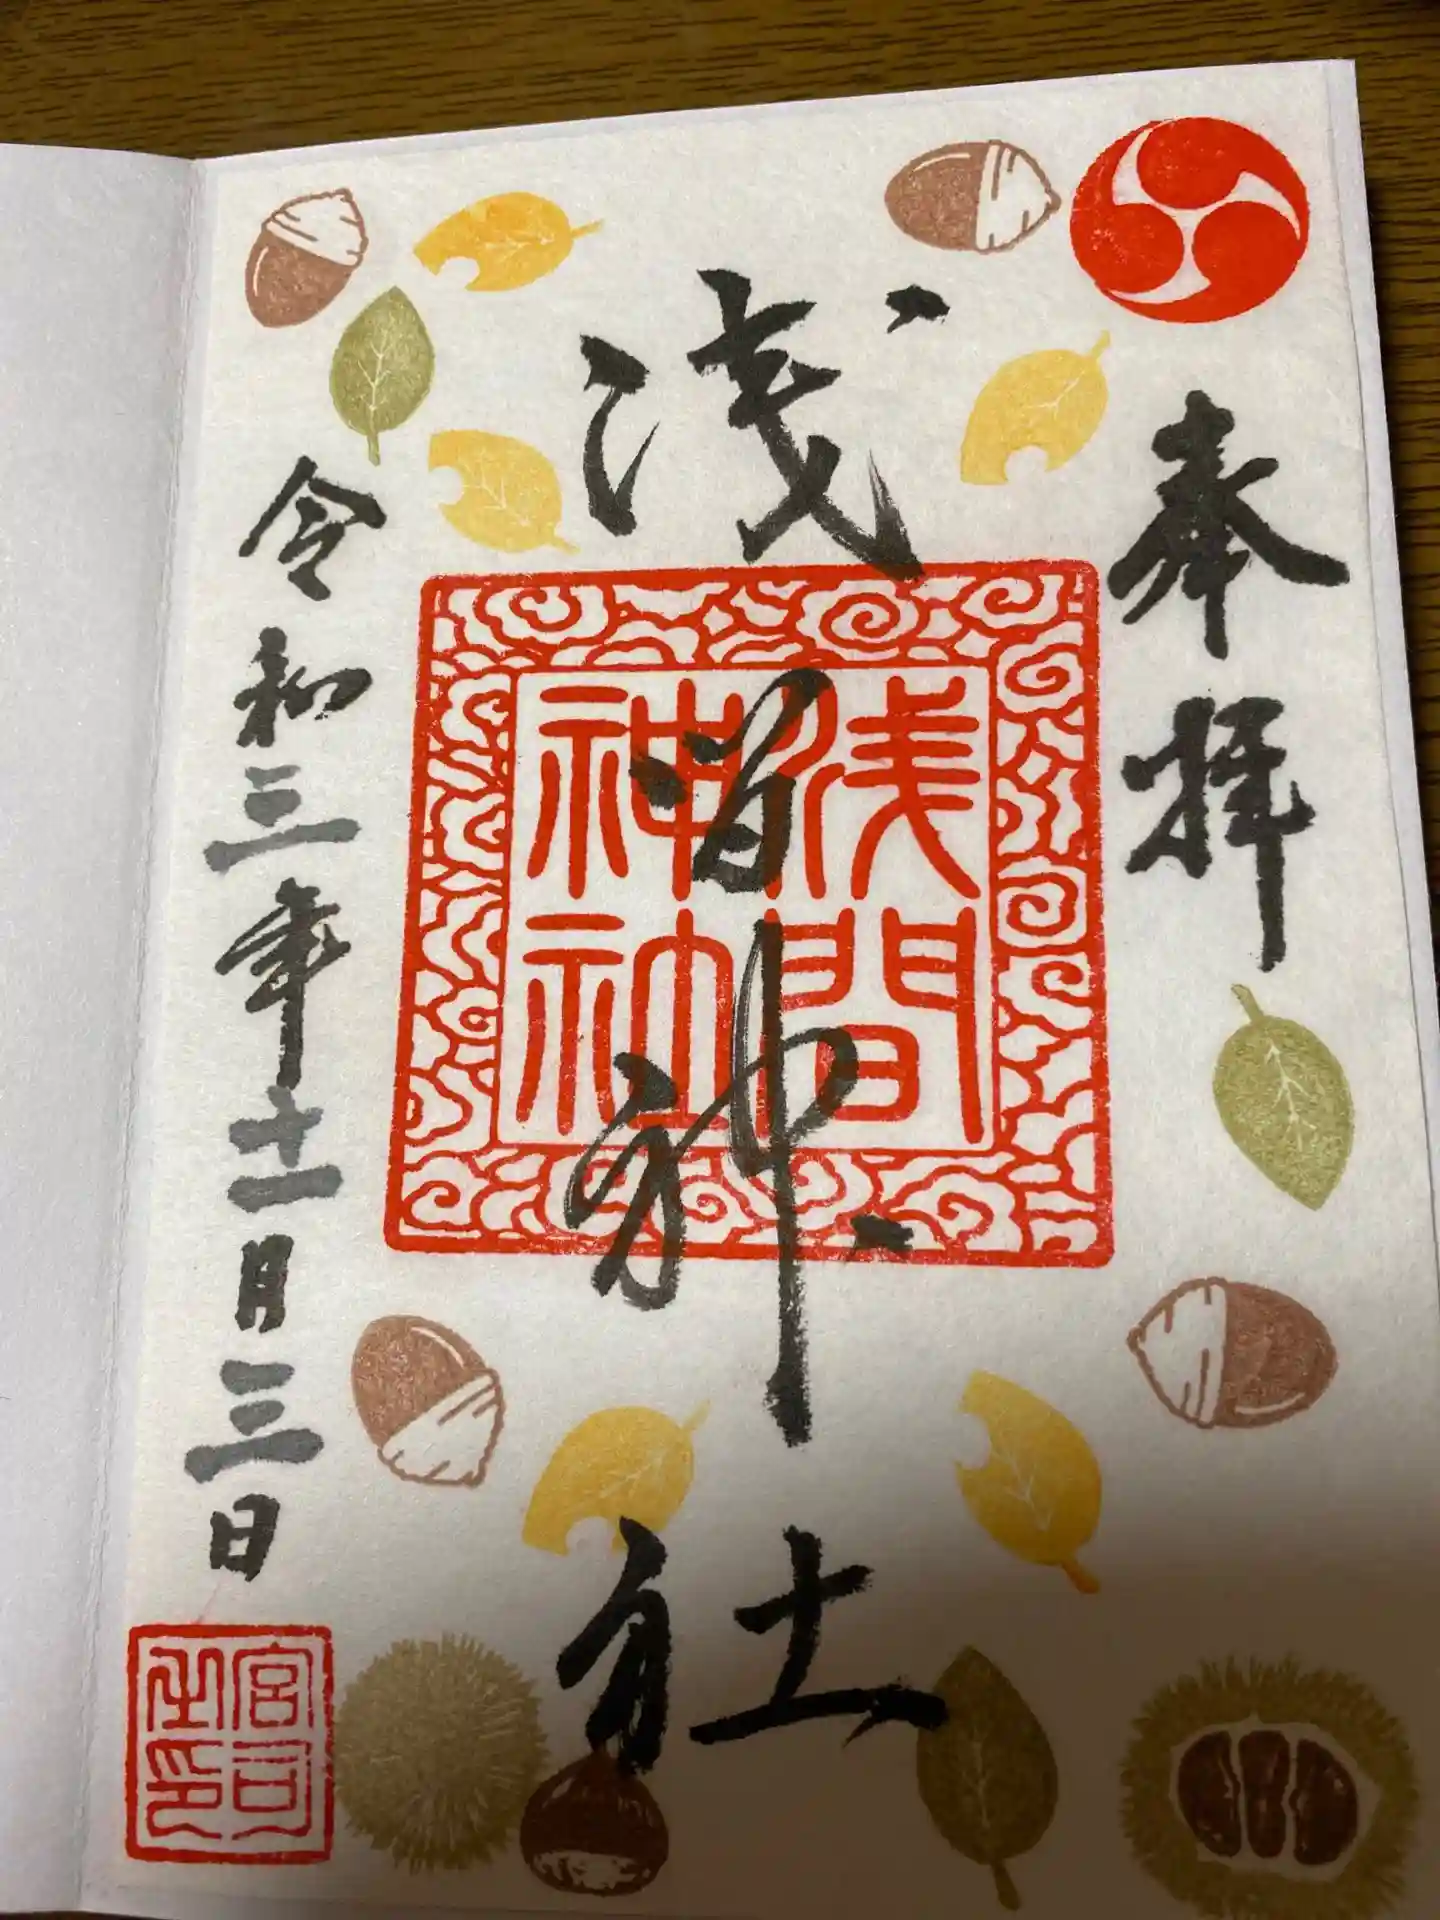 奉拝
浅間神社
浅間
神社
令和三年十一月三日
宮司
之印